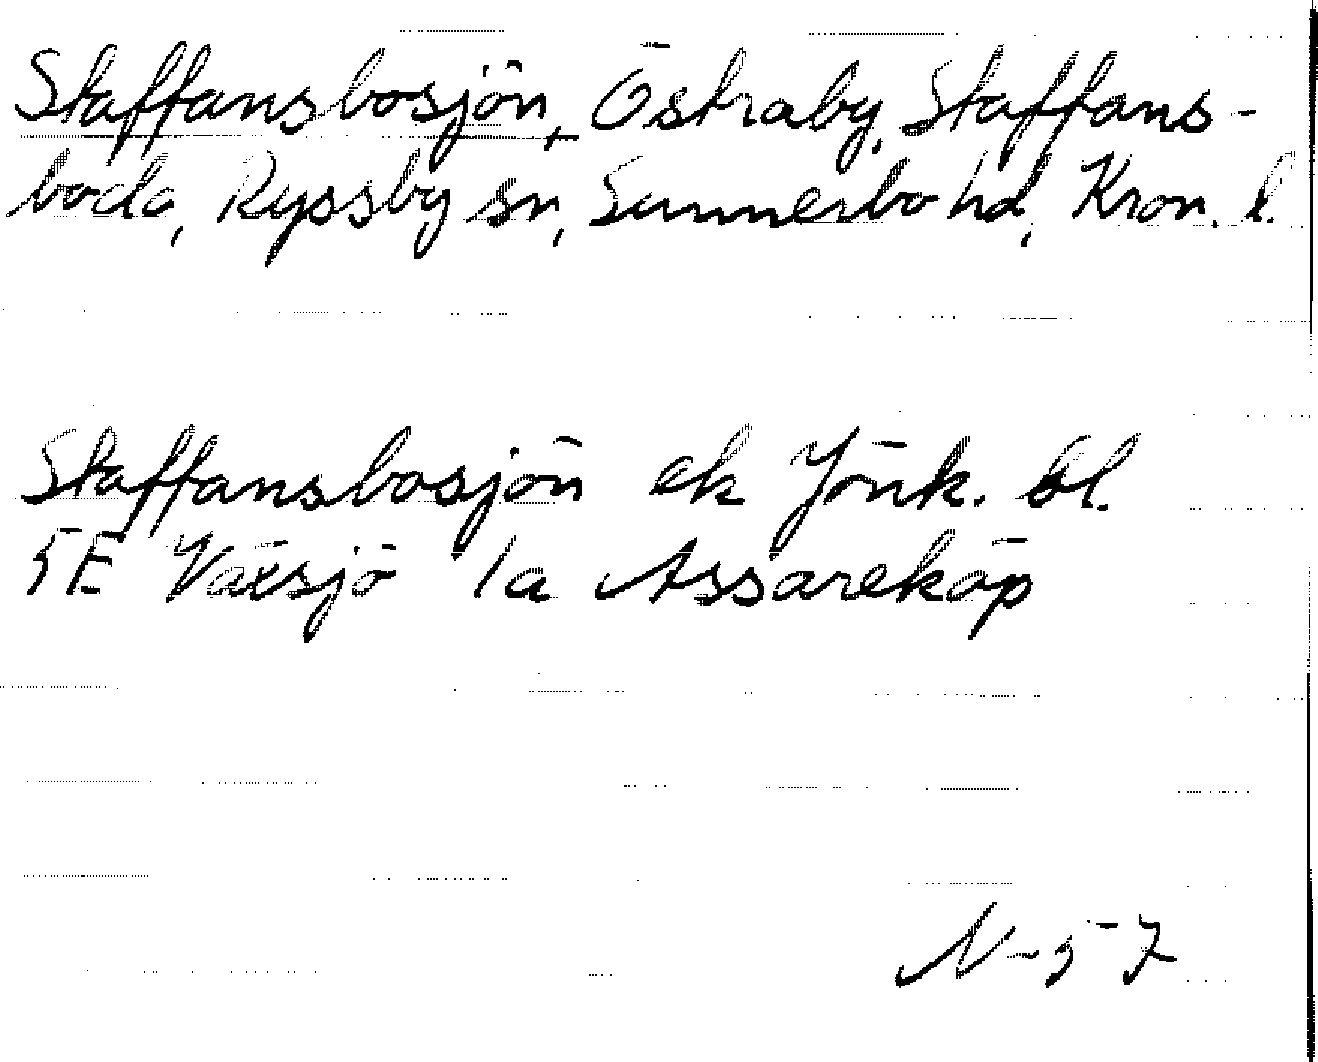 Staffansbosjön, Östraby, Staffans-
boda, Ryssby sn, Sunnerbo hd, Kron. l.
Staffansbosjön ek Jönk. bl.
5E Växsjö 1a Assareköp
N-57